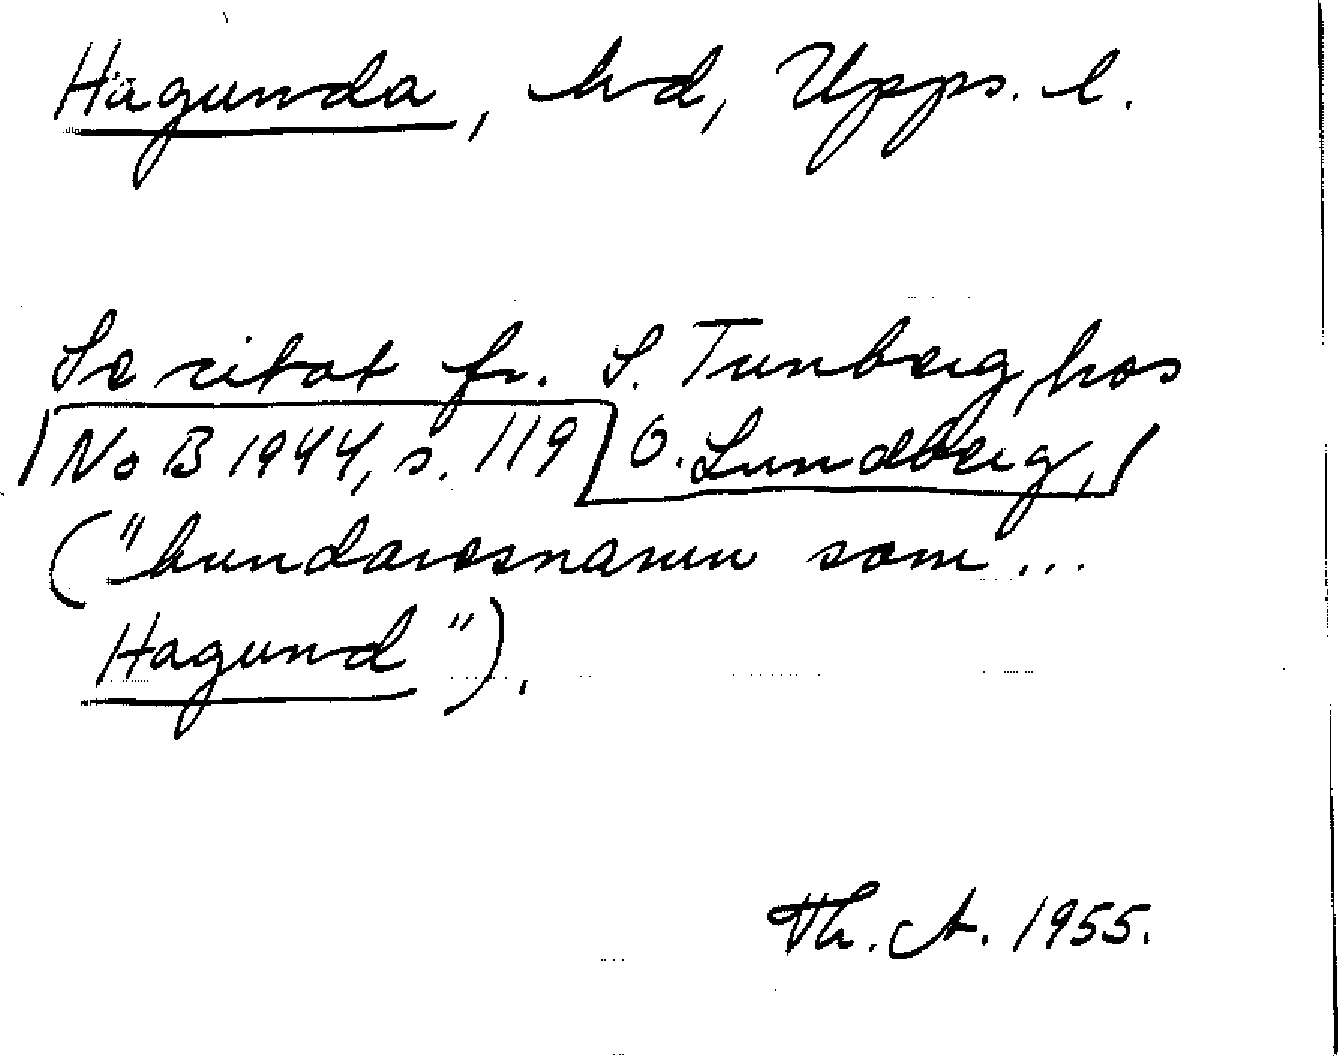 Hagunda, hd, Upps. l.
Se citat fr. S. Tunberg hos
NoB 1944, s. 119 O. Lundberg,
("hundaresnamn som ...
Hagund").
Th. A. 1955.